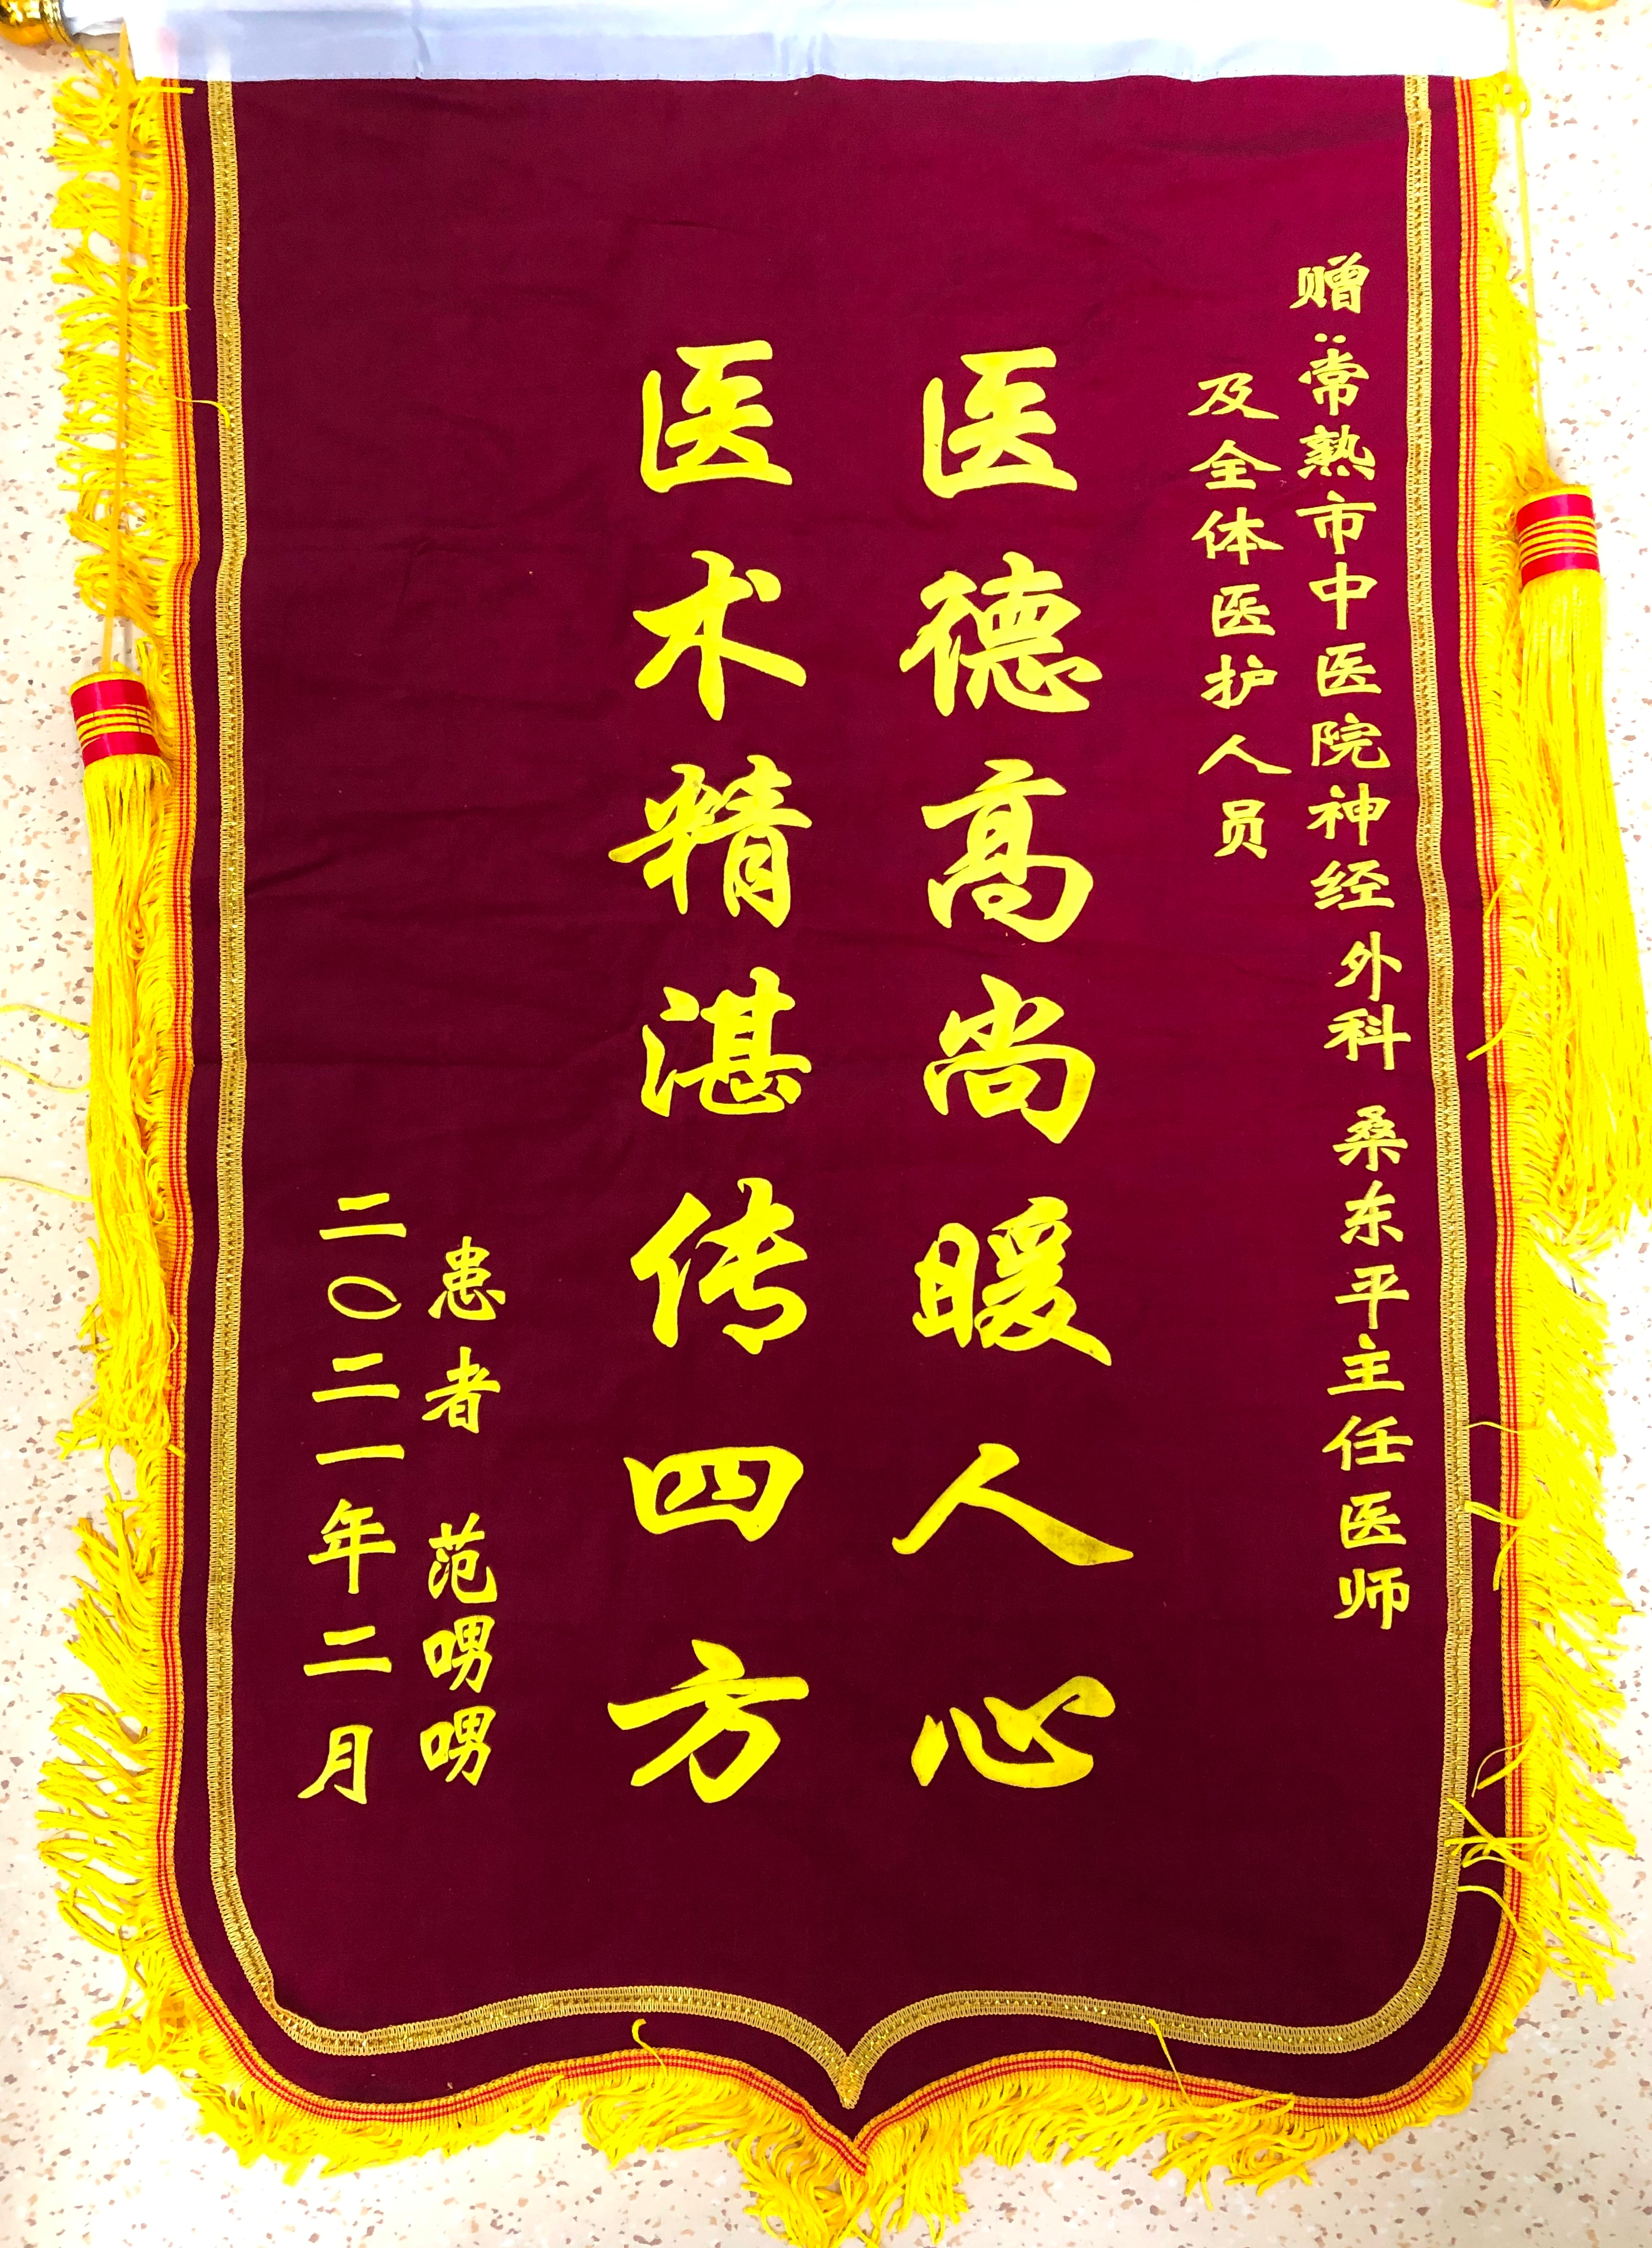 赠:常熟市中医院神经外科 桑东平主任医师
及全体医护人员
医德高尚暖人心
医术精湛传四方
患者 范嘢嘢
二〇二一年二月